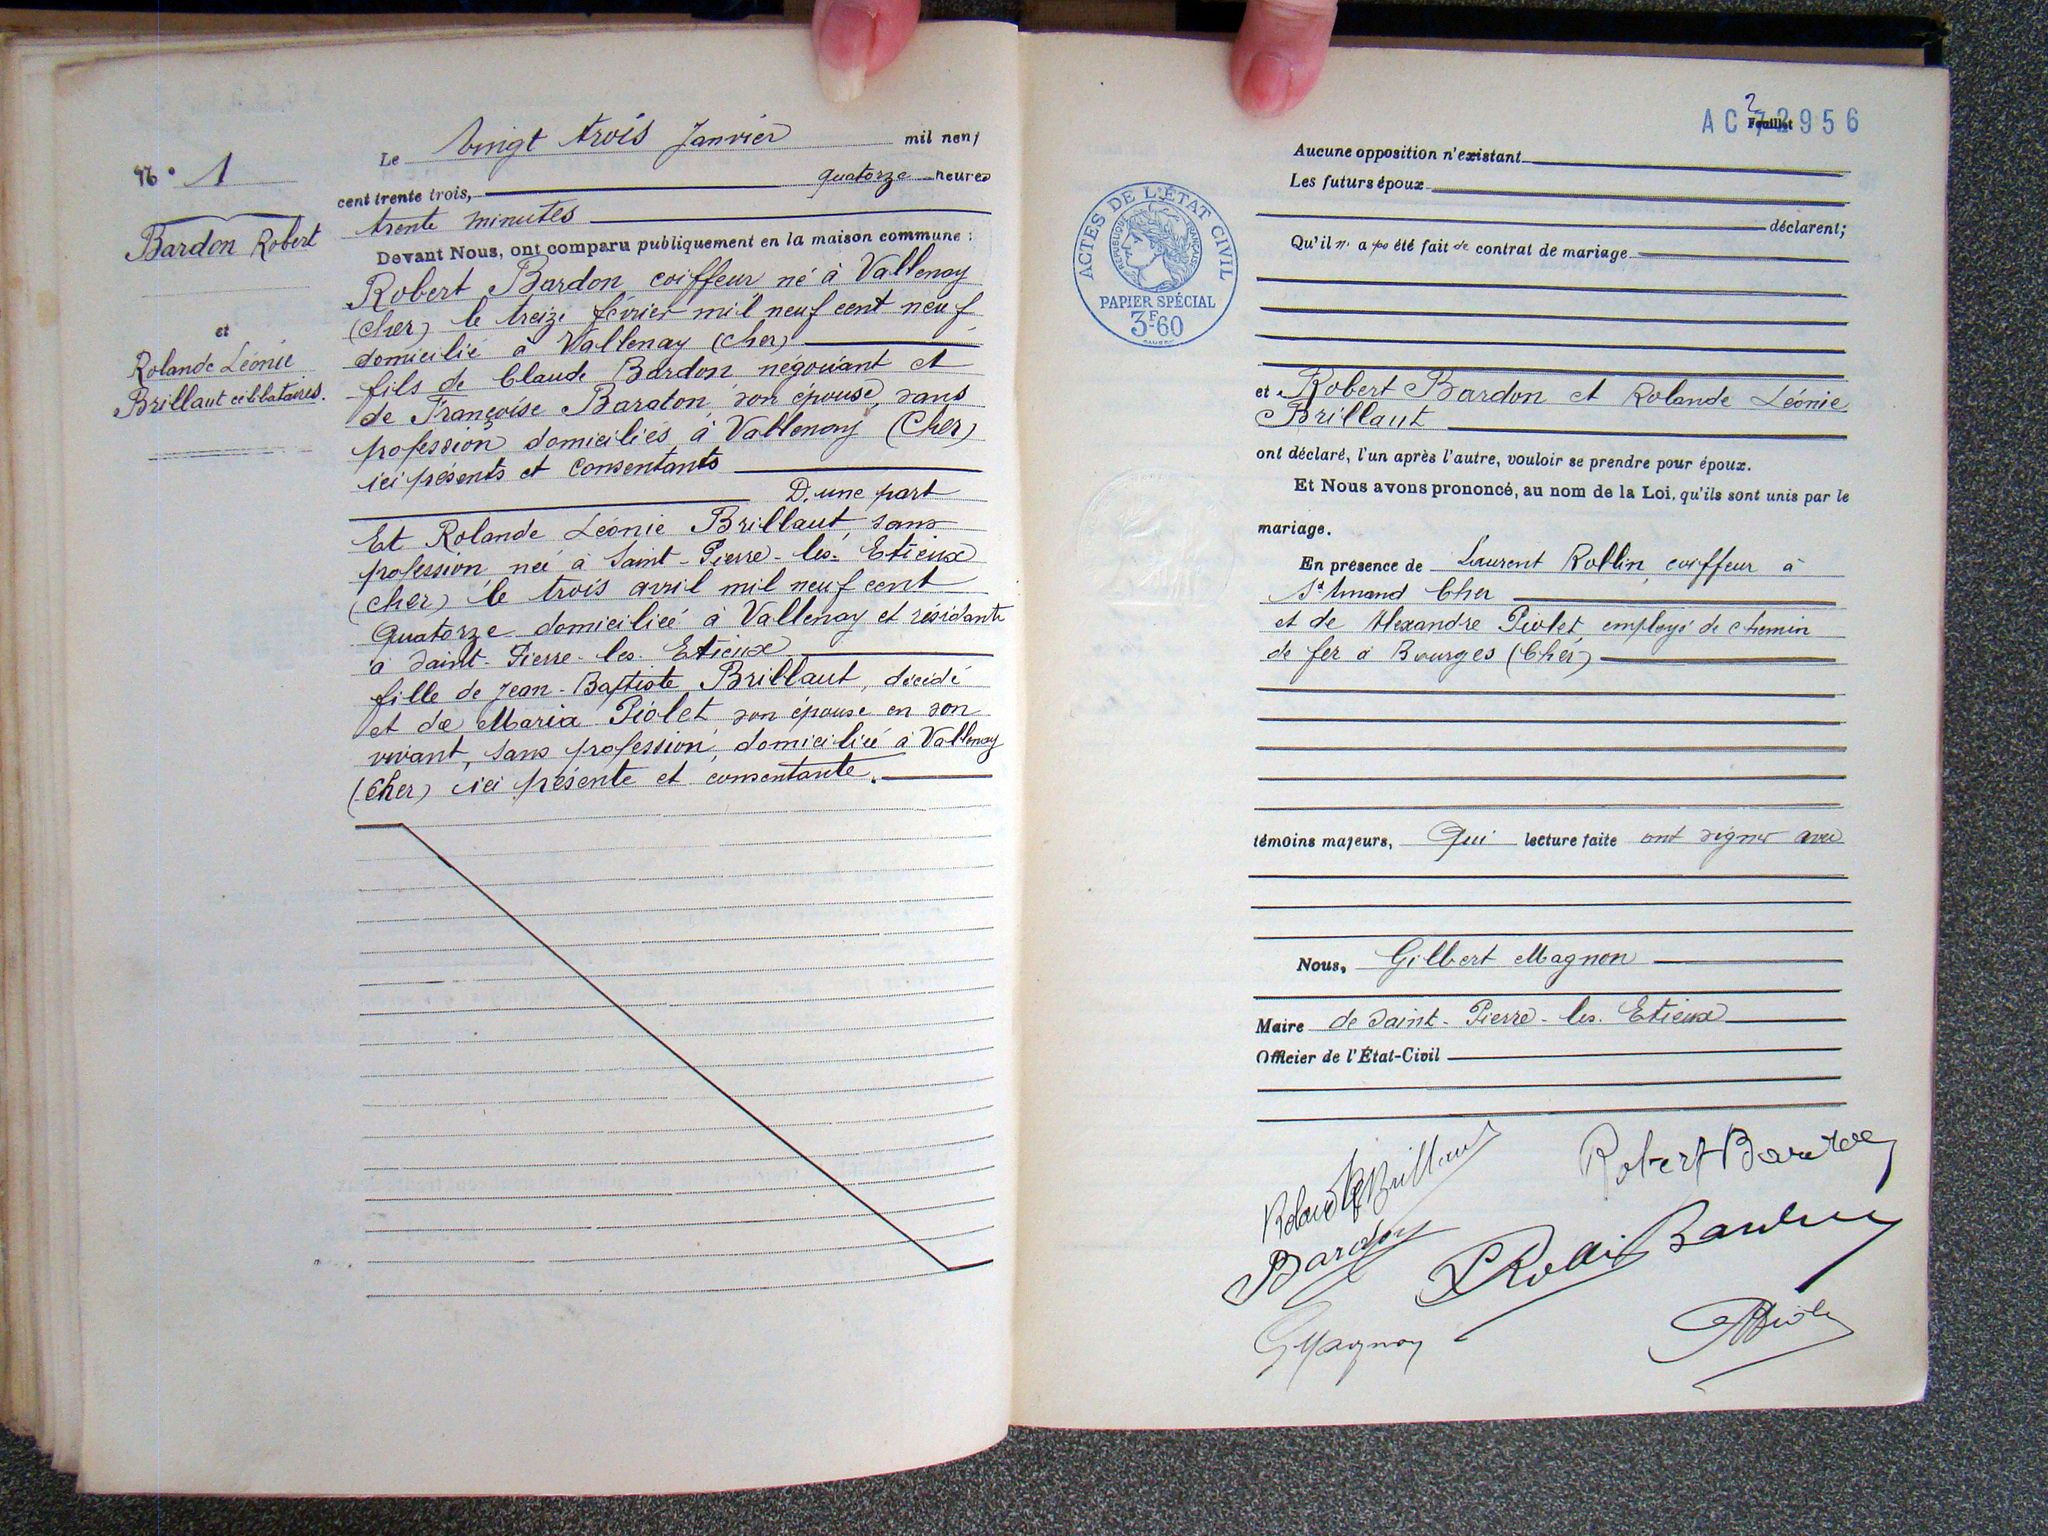 N° 1
Bardon Robert
et
Rolande Léonie
Brillaut célibataires.
Le vingt trois Janvier mil neuf
cent trente trois, quatorze heures
trente minutes
Devant Nous, ont comparu publiquement en la maison commune :
Robert Bardon coiffeur né à Vallenay
(Cher) le treize février mil neuf cent neuf
domicilié à Vallenay (Cher)
fils de Claude Bardon négociant et
de Françoise Baraton, son épouse, sans
profession domiciliés à Vallenay (Cher)
ici présents et consentants
D'une part
Et Rolande Léonie Brillaut, sans
profession née à Saint-Pierre-les-Etieux
(Cher) le trois avril mil neuf cent
Quatorze domiciliée à Vallenay et résidante
à Saint-Pierre-les-Etieux
fille de Jean-Baptiste Brillaut, décédé
et de Maria Piolet son épouse en son
vivant, sans profession, domiciliée à Vallenay
(Cher) ici présente et consentante.
2
AC 72956
Feuillet
ACTES DE L'ÉTAT CIVIL
RÉPUBLIQUE FRANÇAISE
PAPIER SPÉCIAL
3F.60
Aucune opposition n'existant
Les futurs époux
déclarent;
Qu'il n' a pas été fait de contrat de mariage
et Robert Bardon et Rolande Léonie
Brillaut
ont déclaré, l'un après l'autre, vouloir se prendre pour époux.
Et Nous avons prononcé, au nom de la Loi, qu'ils sont unis par le
mariage.
En présence de Laurent Rollin, coiffeur à
St Amand Cher
et de Alexandre Piolet, employé de chemin
de fer à Bourges (Cher)
témoins majeurs, Qui lecture faite ont signer avec
Nous, Gilbert Magnon
Maire de Saint-Pierre-les-Etieux
Officier de l'État-Civil
Robert Bardon
Rolande Brillaut
Bardon
L Rollin
GMagnon